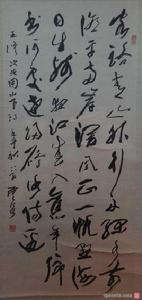 客路青山外行舟绿水前
潮平两岸阔风正一帆悬海
日生残夜江春入旧年乡
书何处达归雁洛阳边
王湾次北固山下诗